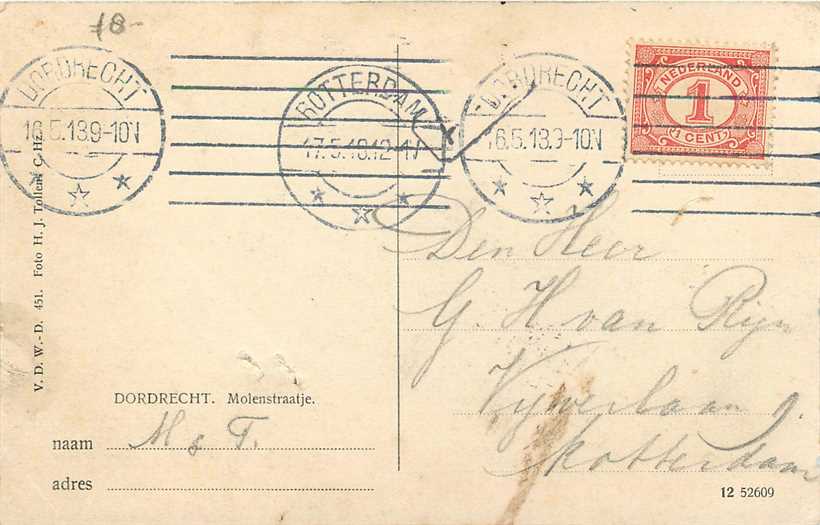 18-
DORDRECHT
16.5.18.9-10V
ROTTERDAM
17.5.18.12-1V
DORDRECHT
16.5.18.9-10V
NEDERLAND
1
1 CENT
V. D. W.-D. 451. Foto H. J. Tollens C.Hz.
Den Heer
G. H van Rijn
Vijverlaan 9.
Rotterdam
DORDRECHT. Molenstraatje.
naam M & T.
adres
12 52609